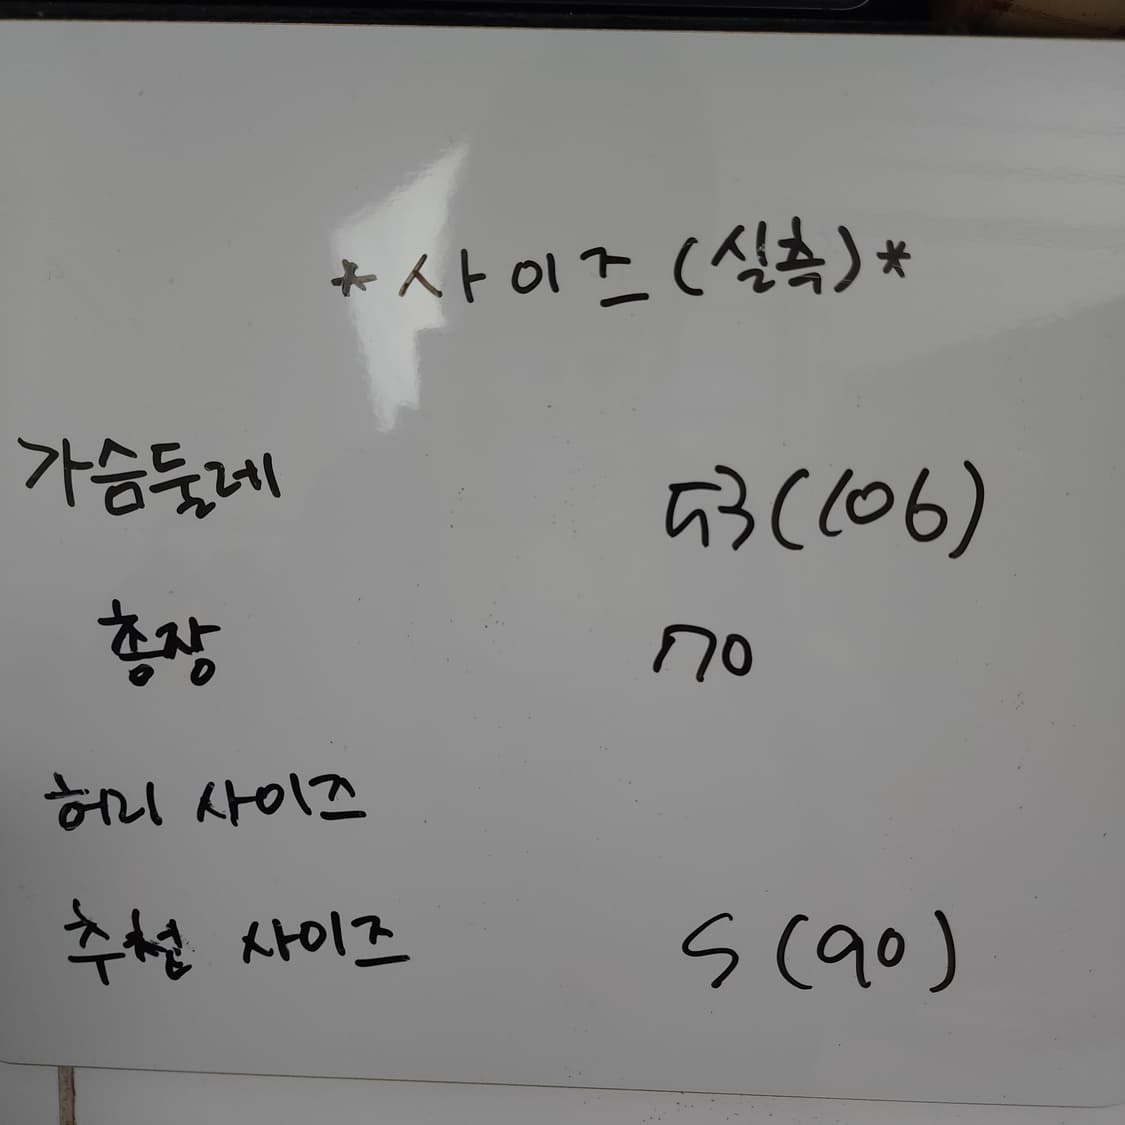 *사이즈(실측)*
가슴둘레 53(106)
총장 70
허리 사이즈
추천 사이즈 S(90)